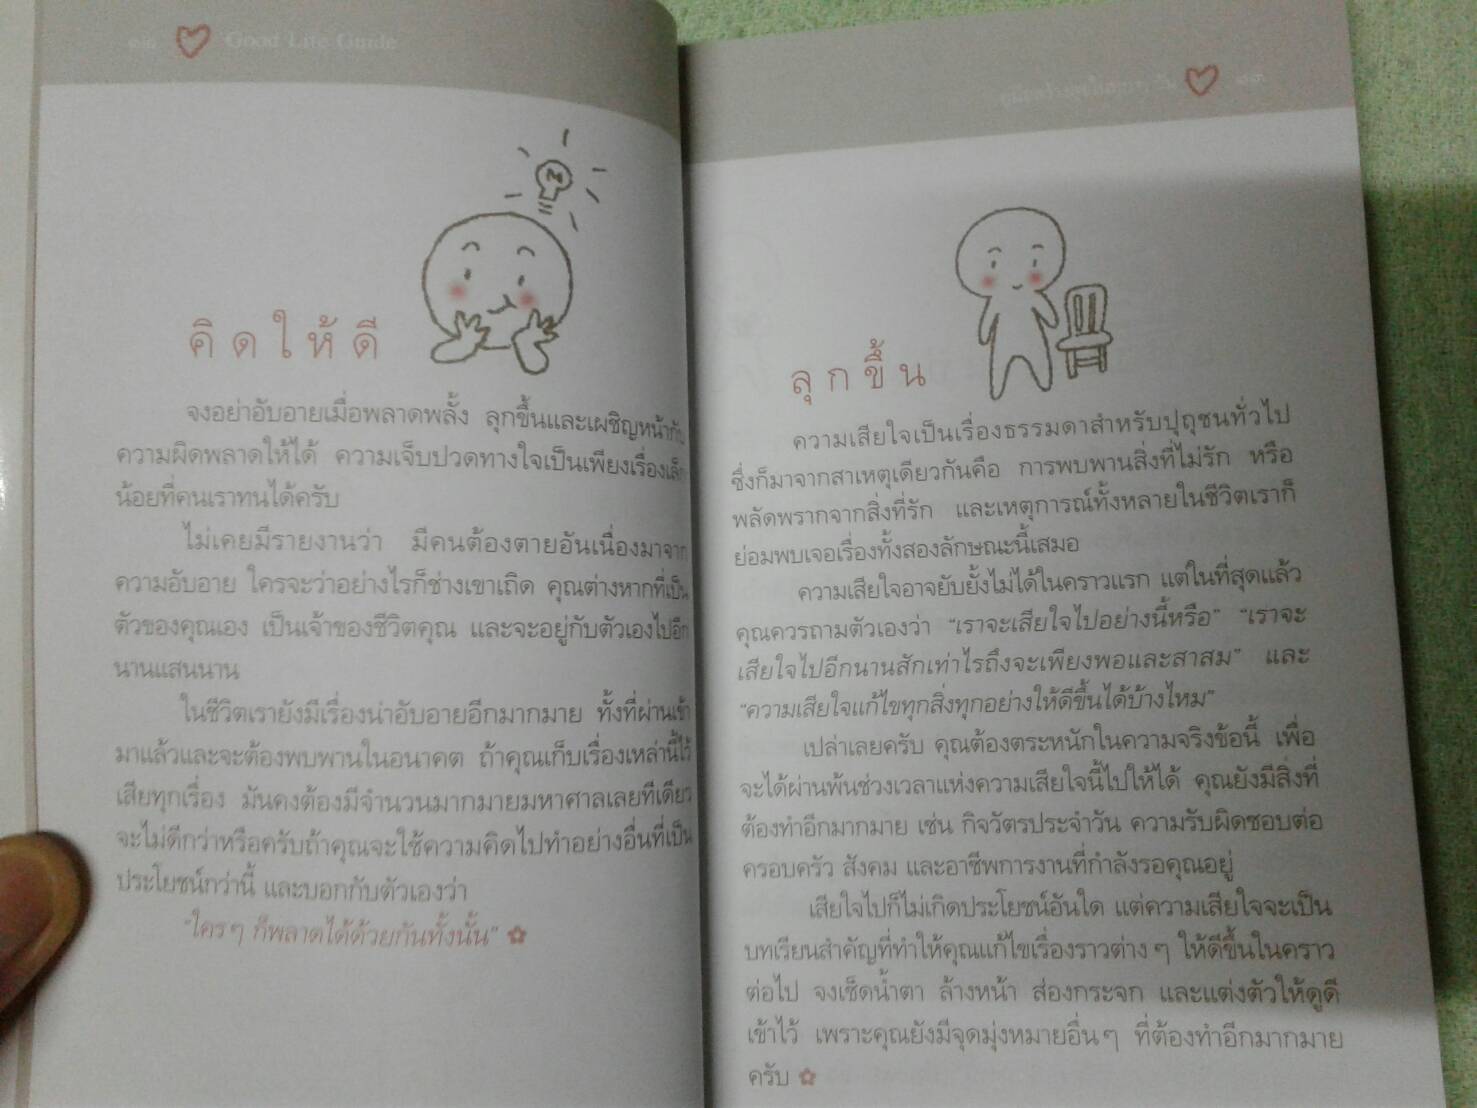 ๑๒ Good Life Guide
คิดให้ดี
จงอย่าอับอายเมื่อพลาดพลั้ง ลุกขึ้นและเผชิญหน้ากับ
ความผิดพลาดให้ได้ ความเจ็บปวดทางใจเป็นเพียงเรื่องเล็ก
น้อยที่คนเราทนได้ครับ
ไม่เคยมีรายงานว่า มีคนต้องตายอันเนื่องมาจาก
ความอับอาย ใครจะว่าอย่างไรก็ช่างเขาเถิด คุณต่างหากที่เป็น
ตัวของคุณเอง เป็นเจ้าของชีวิตคุณ และจะอยู่กับตัวเองไปอีก
นานแสนนาน
ในชีวิตเรายังมีเรื่องน่าอับอายอีกมากมาย ทั้งที่ผ่านเข้า
มาแล้วและจะต้องพบพานในอนาคต ถ้าคุณเก็บเรื่องเหล่านี้ไว้
เสียทุกเรื่อง มันคงต้องมีจำนวนมากมายมหาศาลเลยทีเดียว
จะไม่ดีกว่าหรือครับถ้าคุณจะใช้ความคิดไปทำอย่างอื่นที่เป็น
ประโยชน์กว่านี้ และบอกกับตัวเองว่า
"ใครๆ ก็พลาดได้ด้วยกันทั้งนั้น"
๑๓
ลุกขึ้น
ความเสียใจเป็นเรื่องธรรมดาสำหรับปุถุชนทั่วไป
ซึ่งก็มาจากสาเหตุเดียวกันคือ การพบพานสิ่งที่ไม่รัก หรือ
พลัดพรากจากสิ่งที่รัก และเหตุการณ์ทั้งหลายในชีวิตเราก็
ย่อมพบเจอเรื่องทั้งสองลักษณะนี้เสมอ
ความเสียใจอาจยับยั้งไม่ได้ในคราวแรก แต่ในที่สุดแล้ว
คุณควรถามตัวเองว่า "เราจะเสียใจไปอย่างนี้หรือ" "เราจะ
เสียใจไปอีกนานสักเท่าไรถึงจะเพียงพอและสาสม" และ
"ความเสียใจแก้ไขทุกสิ่งทุกอย่างให้ดีขึ้นได้บ้างไหม"
เปล่าเลยครับ คุณต้องตระหนักในความจริงข้อนี้ เพื่อ
จะได้ผ่านพ้นช่วงเวลาแห่งความเสียใจนี้ไปให้ได้ คุณยังมีสิ่งที่
ต้องทำอีกมากมาย เช่น กิจวัตรประจำวัน ความรับผิดชอบต่อ
ครอบครัว สังคม และอาชีพการงานที่กำลังรอคุณอยู่
เสียใจไปก็ไม่เกิดประโยชน์อันใด แต่ความเสียใจจะเป็น
บทเรียนสำคัญที่ทำให้คุณแก้ไขเรื่องราวต่างๆ ให้ดีขึ้นในคราว
ต่อไป จงเช็ดน้ำตา ล้างหน้า ส่องกระจก และแต่งตัวให้ดูดี
เข้าไว้ เพราะคุณยังมีจุดมุ่งหมายอื่นๆ ที่ต้องทำอีกมากมาย
ครับ